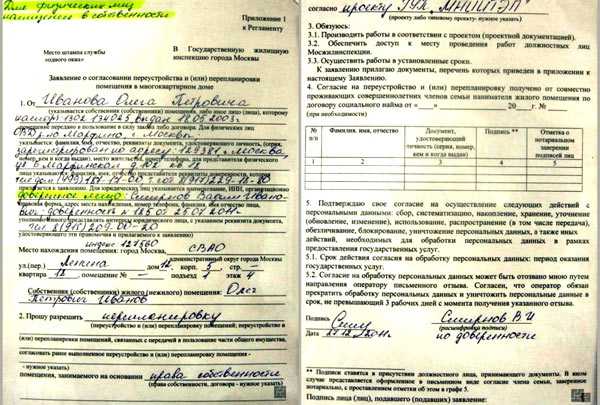 Для физических лиц
помещение в собственности
Приложение 1
к Регламенту
Место штампа службы
«одного окна»
В Государственную жилищную
инспекцию города Москвы
Заявление о согласовании переустройства и (или) перепланировки
помещения в многоквартирном доме
1. От Иванова Олега Петровича
(указывается собственник (собственники) помещения, либо иное лицо (лица), которому
выдан 18.05.2003г.
передано в пользование в силу закона либо договора. Для физических лиц
г. Москвы
указывается: фамилия, имя, отчество, реквизиты документа, удостоверяющего личность, (серия,
зарегистрирован по адресу: Москва,
номер, кем и когда выдан), место жительства, номер телефона, для представителя физического
лица указывается: фамилия, имя, отчество представителя, реквизиты доверенности, которая
прилагается к заявлению. Для юридических лиц указывается наименование, ИНН, организационно-
доверенное лицо: Смирнов
правовая форма, адрес места нахождения, номер телефона, фамилия, имя, отчество лица,
доверенность
уполномоченного представлять интересы юридического лица, с указанием реквизитов документа,
удостоверяющего эти правомочия и прилагаемого к заявлению)
индекс 127560
Место нахождения помещения: город Москва, СВАО
административный округ города Москвы
ул.(пер.) Ленина дом 12 корп. 5 стр.
квартира 12, помещение № – подъезд этаж 4
Собственник (собственники) жилого (нежилого) помещения: Олег
Петрович Иванов
2. Прошу разрешить перепланировку
(переустройство и (или) перепланировку помещений; переустройство и
(или) перепланировки помещений, связанных с передачей в пользование части общего имущества,
согласовать ранее выполненное переустройство и (или) перепланировку помещения -
нужное указать)
помещения, занимаемого на основании права собственности
(права собственности, договора - нужное указать)
согласно проекту ГУП „МНИИТЭП"
(проекту либо типовому проекту- нужное указать)
3. Обязуюсь:
3.1. Производить работы в соответствии с проектом (проектной документацией).
3.2. Обеспечить доступ к месту проведения работ должностных лиц
Мосжилинспекции.
3.3. Осуществить работы в установленные сроки.
К заявлению прилагаю документы, перечень которых приведен в приложении к
настоящему Заявлению.
4. Согласие на переустройство и (или) перепланировку получено от совместно
проживающих совершеннолетних членов семьи нанимателя жилого помещения по
договору социального найма от « » 20 г. №
(при необходимости)
№ п/п Фамилия, имя, отчество Документ, удостоверяющий личность (серия, номер, кем и когда выдан) Подпись ** Отметка о нотариальном заверении подписей лиц
1 2 3 4 5
5. Подтверждаю свое согласие на осуществление следующих действий с
персональными данными: сбор, систематизацию, накопление, хранение, уточнение
(обновление, изменение), использование, распространение (в том числе передача),
обезличивание, блокирование, уничтожение персональных данных, а также иных
действий, необходимых для обработки персональных данных в рамках
предоставления государственных услуг.
5.1. Срок действия согласия на обработку персональных данных: период оказания
государственных услуг.
5.2. Согласие на обработку персональных данных может быть отозвано мною путем
направления оператору письменного отзыва. Согласен, что оператор обязан
прекратить обработку персональных данных и уничтожить персональные данные в
срок, не превышающий 3 рабочих дней с момента получения указанного отзыва.
Подпись Смирнов В И
(расшифровка подписи)
Дата по доверенности
** Подписи ставятся в присутствии должностного лица, принимающего документы. В ином
случае представляется оформленное в письменном виде согласие члена семьи, заверенное
нотариально, с проставлением отметки об этом в графе 5.
Подпись лица (лиц), подавшего (подавших) заявление: